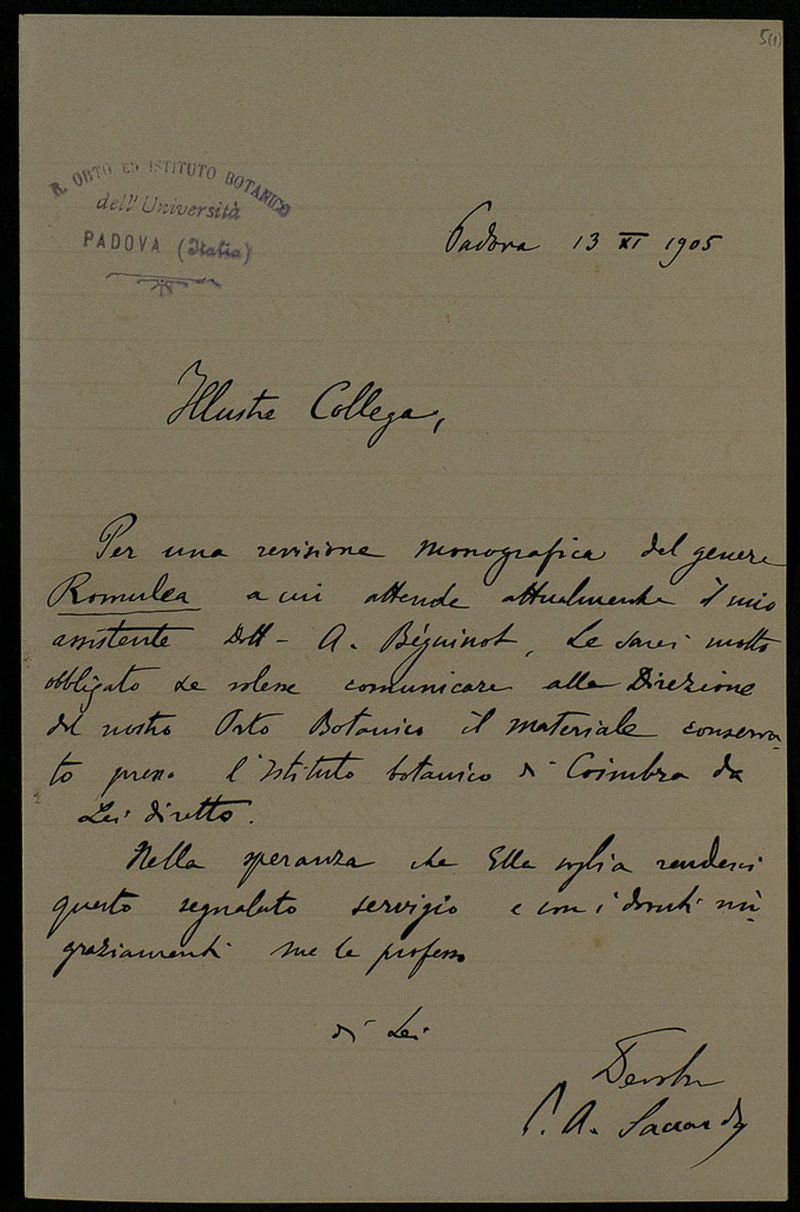 5(1)
R. ORTO ED ISTITUTO BOTANICO
dell'Università
PADOVA (Italia)
Padova 13 XI 1905
Illustre Collega,
Per una revisione monografica del genere
Romulea a cui attende attualmente il mio
assistente Dtt - A. Béguinot, Le sarei molto
obbligato se volesse comunicare alla Direzione
del nostro Orto Botanico il materiale conserva-
to presso l'Istituto botanico di Coimbra da
Lei diretto.
Nella speranza che Ella voglia renderci
questo segnalato servigio e con i dovuti rin-
graziamenti me le professo
di Lei
Devotmo
P. A. Saccardo